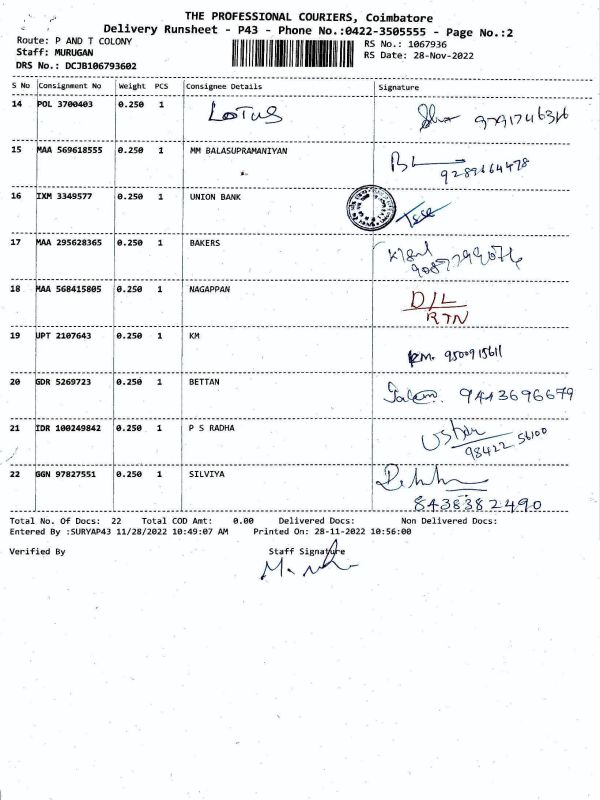 THE PROFESSIONAL COURIERS, Coimbatore
Delivery Runsheet - P43 - Phone No.:0422-3505555 - Page No.:2
Route: P AND T COLONY
RS No.: 1067936
Staff: MURUGAN
RS Date: 28-Nov-2022
DRS No.: DCJB106793602
S No Consignment No Weight PCS Consignee Details Signature
14 POL 3700403 0.250 1 LOTUS 9791746316
15 MAA 569618555 0.250 1 MM BALASUPRAMANIYAN
16 IXM 3349577 0.250 1 UNION BANK
17 MAA 295628365 0.250 1 BAKERS
18 MAA 568415805 0.250 1 NAGAPPAN D/L
RTN
19 UPT 2107643 0.250 1 KM
KM. 9500915611
20 GDR 5269723 0.250 1 BETTAN 9443696679
21 IDR 100249842 0.250 1 P S RADHA
98422 56100
22 GGN 97827551 0.250 1 SILVIYA
8438382490
Total No. Of Docs: 22 Total COD Amt: 0.00 Delivered Docs: Non Delivered Docs:
Entered By :SURYAP43 11/28/2022 10:49:07 AM Printed On: 28-11-2022 10:56:00
Verified By Staff Signature